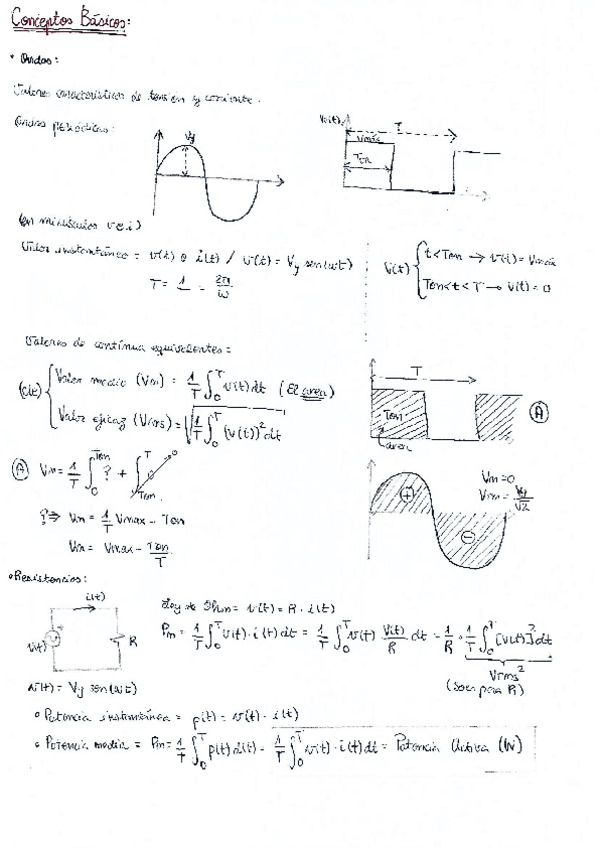 Conceptos Básicos:
• Ondas:
Valores característicos de tensión y corriente.
Ondas periódicas:
Vy
v(t)
T
Vmáx
Ton
(en minúsculas v e i)
Valor instantáneo = v(t) o i(t) / v(t) = Vy sen(wt)
T = 1 = 2π/w
v(t) { t < Ton → v(t) = Vmáx
Ton < t < T → v(t) = 0
Valores de continua equivalentes:
Valor medio (Vm) = 1/T ∫₀ᵀ v(t) dt (El area)
Valor eficaz (Vrms) = √(1/T ∫₀ᵀ (v(t))² dt
T
Ton
area
Ⓐ
Ⓐ Vm = 1/T ∫₀^Ton ? + ∫_Ton^T 0
?⇒ Vm = 1/T Vmax - Ton
Vm = Vmax - Ton/T
+
−
Vm = 0
Vrm = Vy/√2
• Resistencias:
i(t)
v(t)
R
Ley de Ohm = v(t) = R · i(t)
Pm = 1/T ∫₀ᵀ v(t) · i(t) dt = 1/T ∫₀ᵀ v(t) V(t)/R dt = 1/R · 1/T ∫₀ᵀ [v(t)]² dt
Vrms²
(Solo para R)
v(t) = Vy sen(wt)
• Potencia instantánea = p(t) = v(t) · i(t)
• Potencia media = Pm = 1/T ∫₀ᵀ p(t) d(t) = 1/T ∫₀ᵀ v(t) · i(t) dt = Potencia Activa (W)